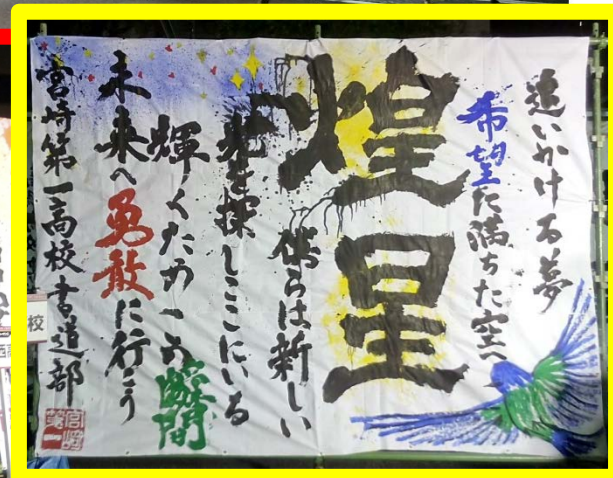 追いかける夢
希望に満ちた空へ
煌星
僕らは新しい
光を探しここにいる
輝くため一の瞬間
未来へ勇敢に行こう
宮崎第一高校書道部
宮崎
第一
校